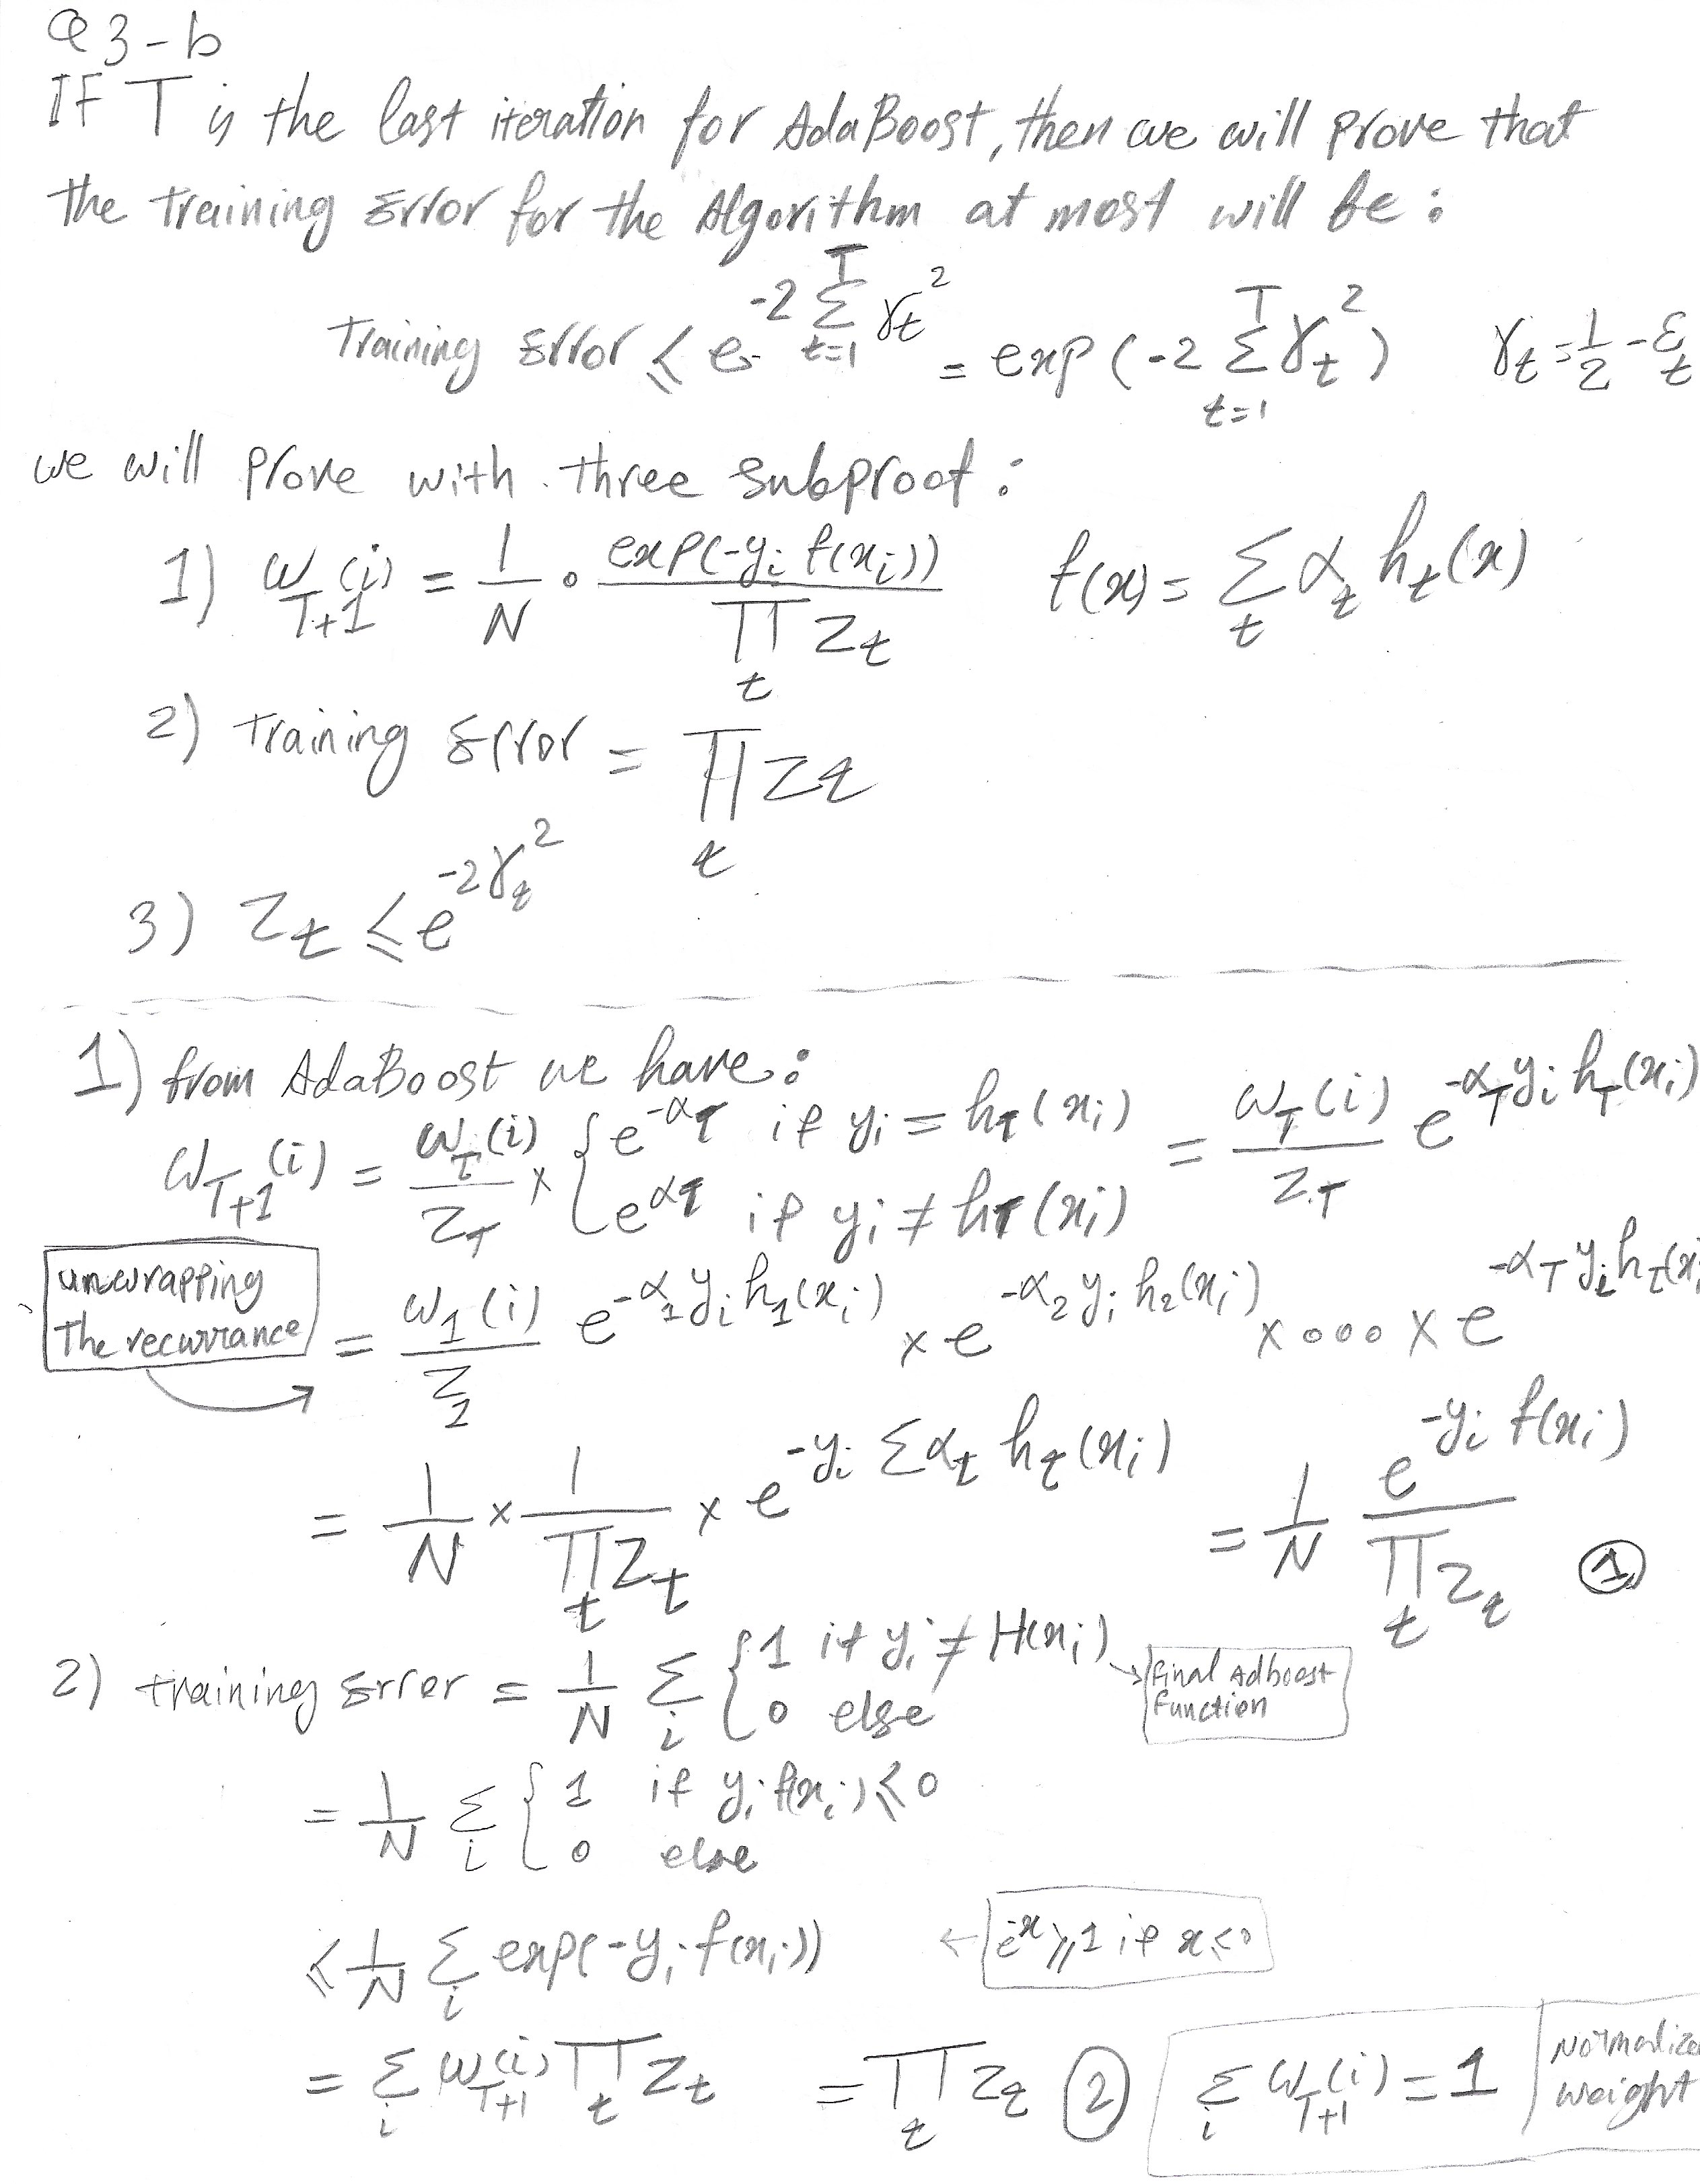 Q3-b
IF T is the last iteration for AdaBoost, then we will prove that
the training Error for the Algorithm at most will be:
Training Error ⩽ e^{-2 Σ_{t=1}^{T} γ_t^2} = exp(-2 Σ_{t=1}^{T} γ_t^2) γ_t = 1/2 - ε_t
we will prove with three subproof:
1) ω_{T+1}(i) = 1/N · exp(-y_i f(x_i)) / ∏_t Z_t f(x) = Σ_t α_t h_t(x)
2) training Error = ∏_t Z_t
3) Z_t ⩽ e^{-2γ_t^2}
1) from AdaBoost we have:
ω_{T+1}(i) = ω_T(i)/Z_T × { e^{-α_T} if y_i = h_T(x_i) = ω_T(i)/Z_T e^{-α_T y_i h_T(x_i)}
e^{α_T} if y_i ≠ h_T(x_i)
unwrapping
The recurrance
= ω_1(i)/Z_1 e^{-α_1 y_i h_1(x_i)} × e^{-α_2 y_i h_2(x_i)} × ooo × e^{-α_T y_i h_T(x_i
= 1/N × 1/∏_t Z_t × e^{-y_i Σ α_t h_t(x_i)} = 1/N e^{-y_i f(x_i)} / ∏_t Z_t ①
2) training Error = 1/N Σ_i { 1 if y_i ≠ H(x_i) → Final Adboost
0 else function
= 1/N Σ_i { 1 if y_i f(x_i) ⩽ 0
0 else
⩽ 1/N Σ_i exp(-y_i f(x_i)) ← e^{-x} ⩾ 1 if x ⩽ 0
= Σ_i ω_{T+1}(i) ∏_t Z_t = ∏_t Z_t ② Σ_i ω_{T+1}(i) = 1 Normalize
weight